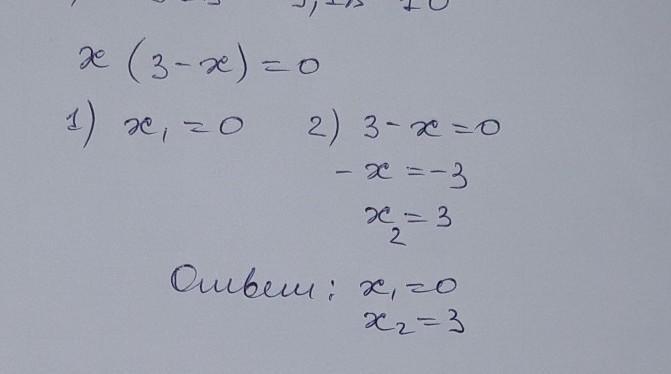 x (3 - x) = 0
1) x₁ = 0 2) 3 - x = 0
- x = -3
x₂ = 3
Ответ: x₁ = 0
x₂ = 3